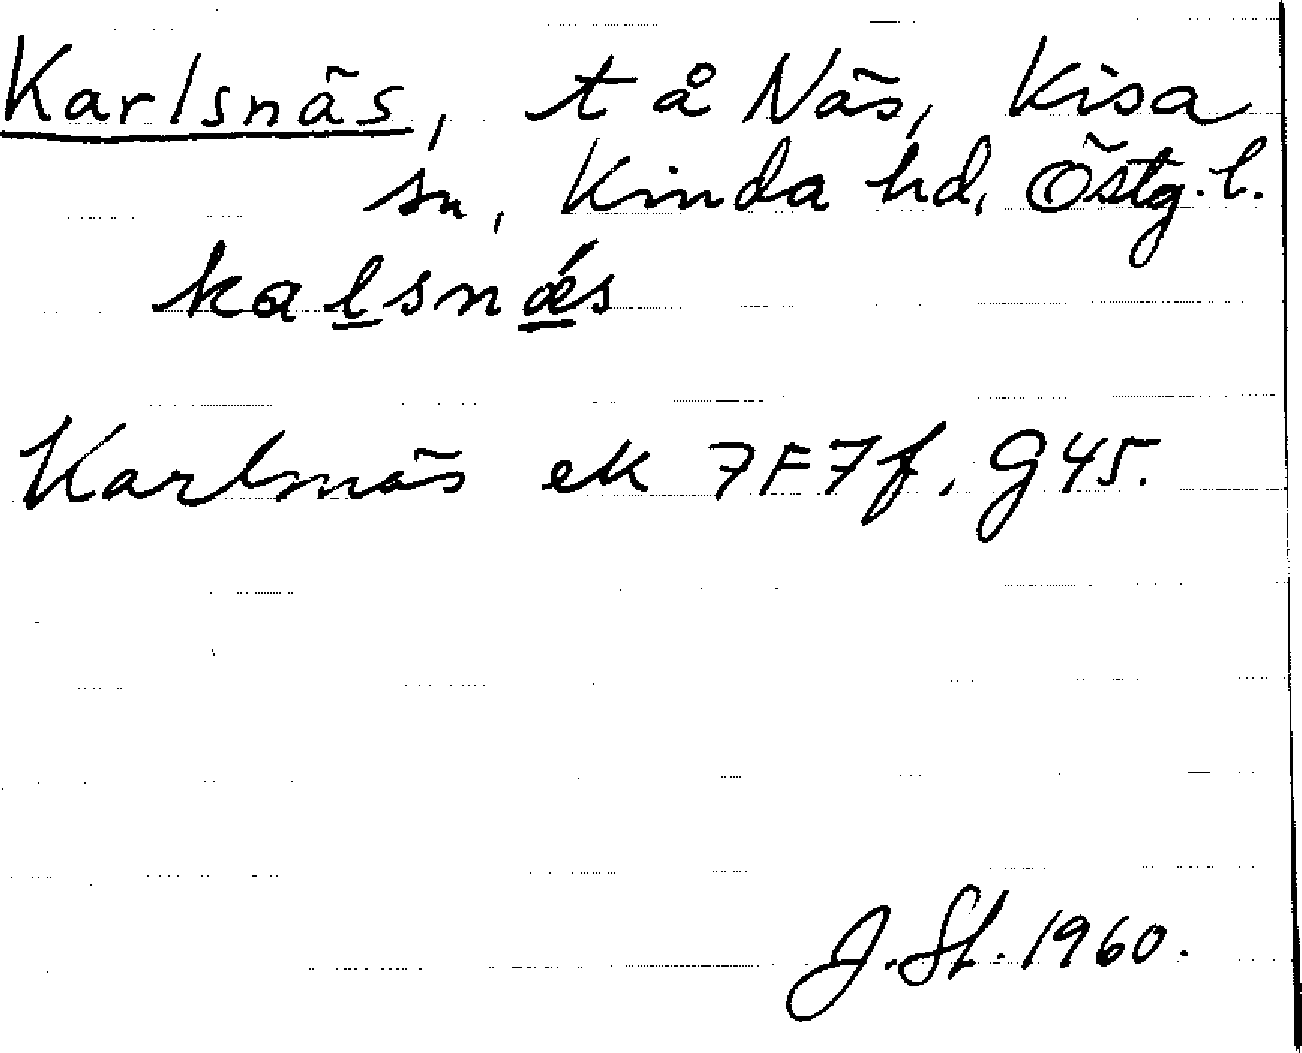 Karlsnäs, t å Näs, Kisa
sn, Kinda hd, Östg. l.
kalsnǽs
Karlsnäs ek 7F7f, G45.
J. St. 1960.